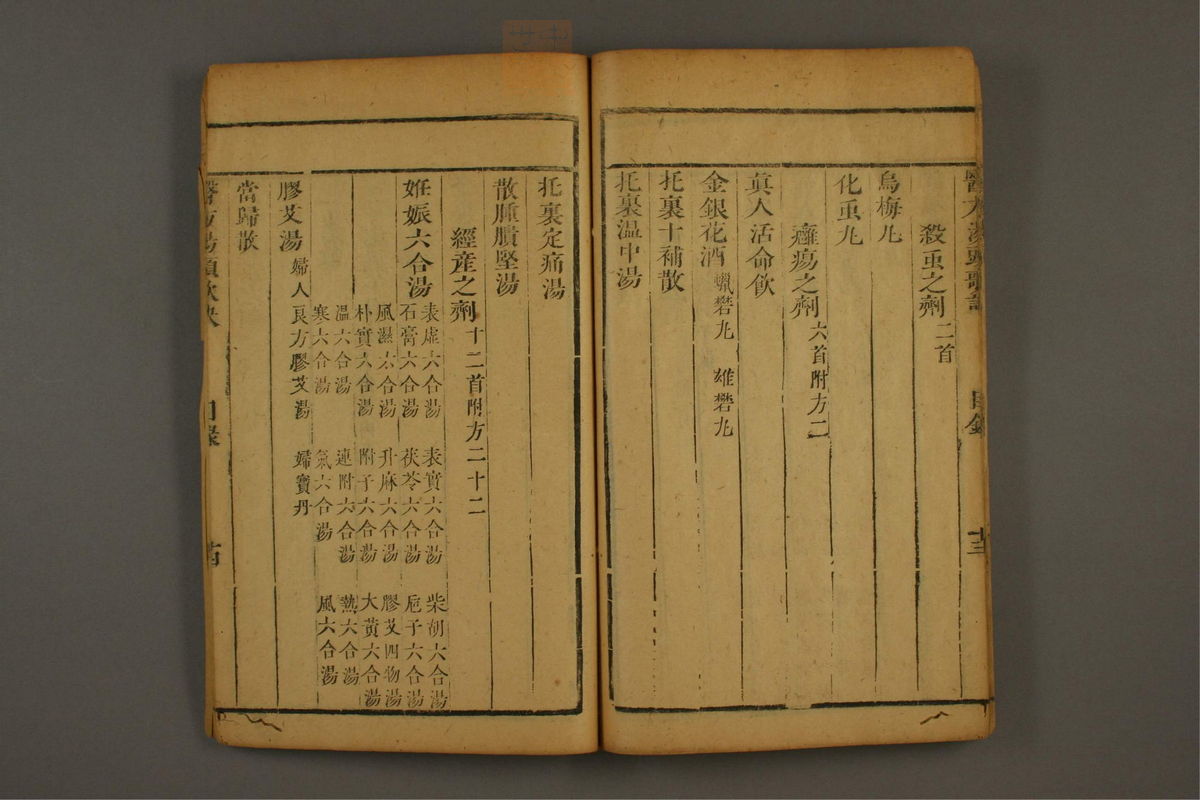 醫方湯頭歌訣 目錄 十三
殺虫之劑二首
烏梅丸
化虫丸
癰瘍之劑六首附方二
真人活命飲
金銀花酒 蠟礬丸 雄礬丸
托裏十補散
托裏温中湯
托裏定痛湯
散腫膭堅湯
經產之劑十二首附方二十二
妊娠六合湯 表虛六合湯 表實六合湯 柴胡六合湯
石膏六合湯 茯苓六合湯 卮子六合湯
風濕六合湯 升麻六合湯 膠艾四物湯
朴實六合湯 附子六合湯 大黃六合湯
温六合湯 連附六合湯 熱六合湯
寒六合湯 氣六合湯 風六合湯
膠艾湯 婦人良方膠艾湯 婦寶丹
當歸散
醫方湯頭歌訣 目錄 十四